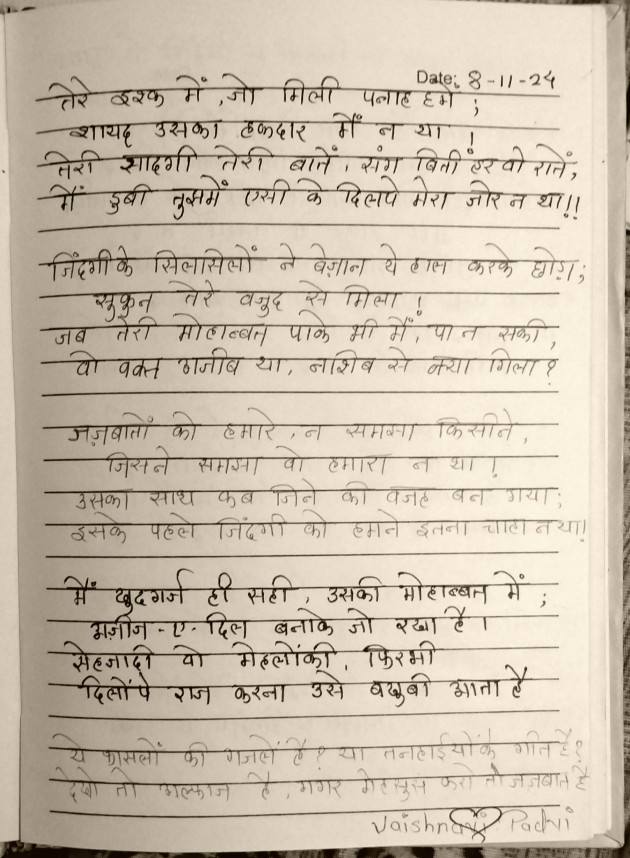 Date: 8-11-24
तेरे इश्क में ,जो मिली पनाह हमें ;
शायद उसका हकदार मैं न था !
तेरी सादगी तेरी बातें, संग बितीं हर वो रातें,
मैं डुबी तुझमें एसी के दिलपे मेरा जोर न था!!
जिंदगी के सिलसिलों ने बेज़ान ये हाल करके छोड़ा;
सुकुन तेरे वजुद से मिला !
जब तेरी मोहाब्बत पाके भी मैं, पा न सकी,
वो वक्त अजीब था, नशिब से क्या गिला ?
जज़बातों को हमारे, न समझा किसीने,
जिसने समझा वो हमारा न था !
उसका साथ कब जिने की वजह बन गया;
इसके पहले जिंदगी को हमने इतना चाहा न था!!
मैं खुदगर्ज ही सही, उसकी मोहाब्बत में ;
अजीज-ए-दिल बनाके जो रखा है।
सेहजादी वो मेहलोंकी, फिरभी
दिलोंपे राज करना उसे बखुबी आता है
ये फासलों की गजलें है? या तनहाईयोंके गीत है?
देखो तो अल्फाज है, मगर मेहसुस करो तो जज़बात है
Vaishnavi Padhi